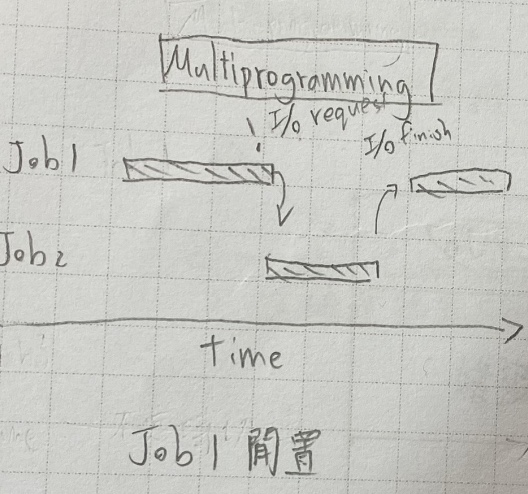 Multiprogramming
I/O request
I/O finish
Job1
Job2
time
Job1 閒置